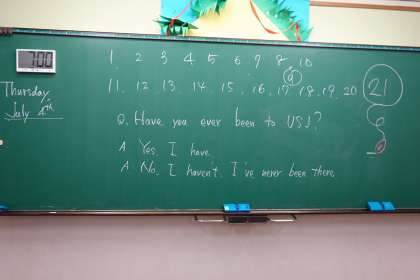 7:00
1. 2 3 4 5 6 7 8 10
9
11. 12. 13. 14. 15. 16. 17 18. 19. 20
21
Thursday
July 4th
Q. Have you ever been to USJ?
A Yes, I have.
A. No, I haven't. I've never been there.